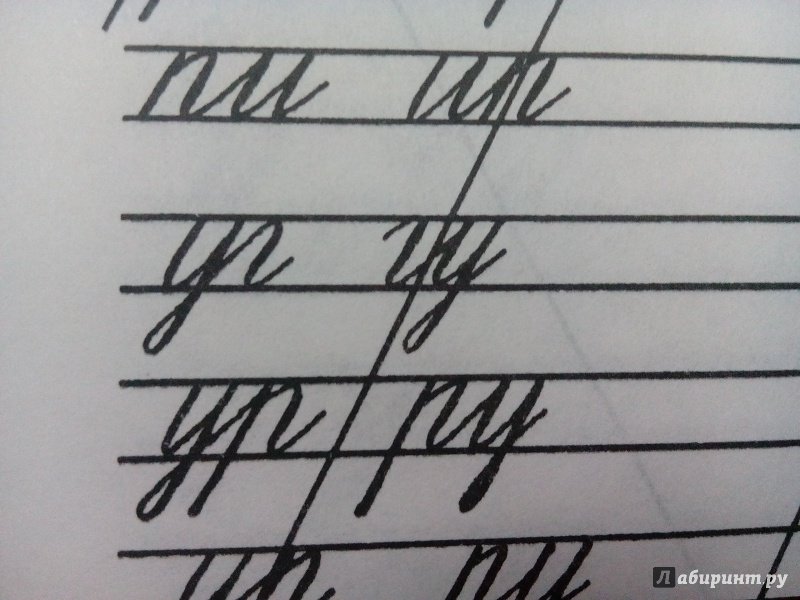 пи ип
уг гу
ур ру
Лабиринт.ру